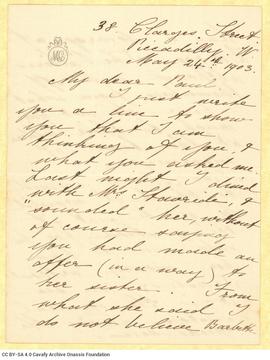 38 Clarges Street
Piccadilly. W.
May 24th 1903.
My dear Paul
I just write
you a line to show
you that I am
thinking of you, &
what you asked me.
Last night I dined
with Mrs
"sounded" her, without
of course saying
you had made an
offer (in a way) to
her sister. From
what she said I
do not believe
CC BY-SA 4.0 Cavafy Archive Onassis Foundation